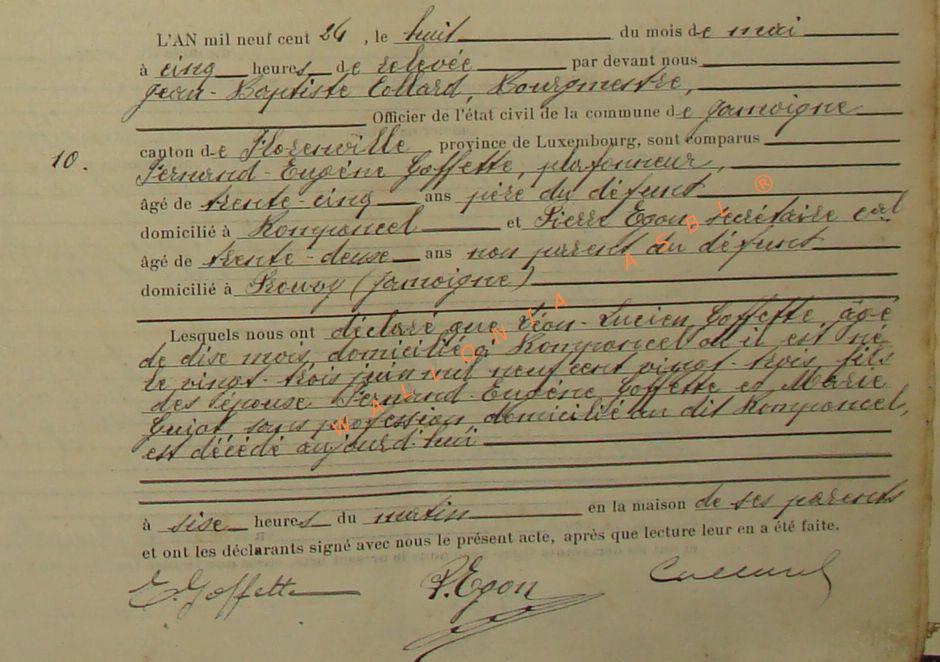 L'AN mil neuf cent 24, le huit du mois de mai
à cinq heures de relevée par devant nous
Jean-Baptiste Collard, Bourgmestre,
Officier de l'état civil de la commune de Jamoigne
10.
canton de Florenville province de Luxembourg, sont comparus
Fernand-Eugène Goffette, plafonneur,
âgé de trente-cinq ans père du défunt
domicilié à Romponcel et Pierre Egon secrétaire cal
âgé de trente-deuse ans non parent du défunt
domicilié à Prouvy (Jamoigne)
Lesquels nous ont déclaré que Léon-Lucien Goffette âgé
de dise mois, domicilié à Romponcel où il est né
le vingt-trois juin mil neuf cent vingt-trois, fils
des épouse Fernand-Eugène Goffette et Marie
Guiot sans profession domicilié au dit Romponcel,
est décédé aujourd'hui
à sise heures du matin en la maison de ses parents
et ont les déclarants signé avec nous le présent acte, après que lecture leur en a été faite.
E. Goffette P. Egon Collard
WALLONIA ASBL ®